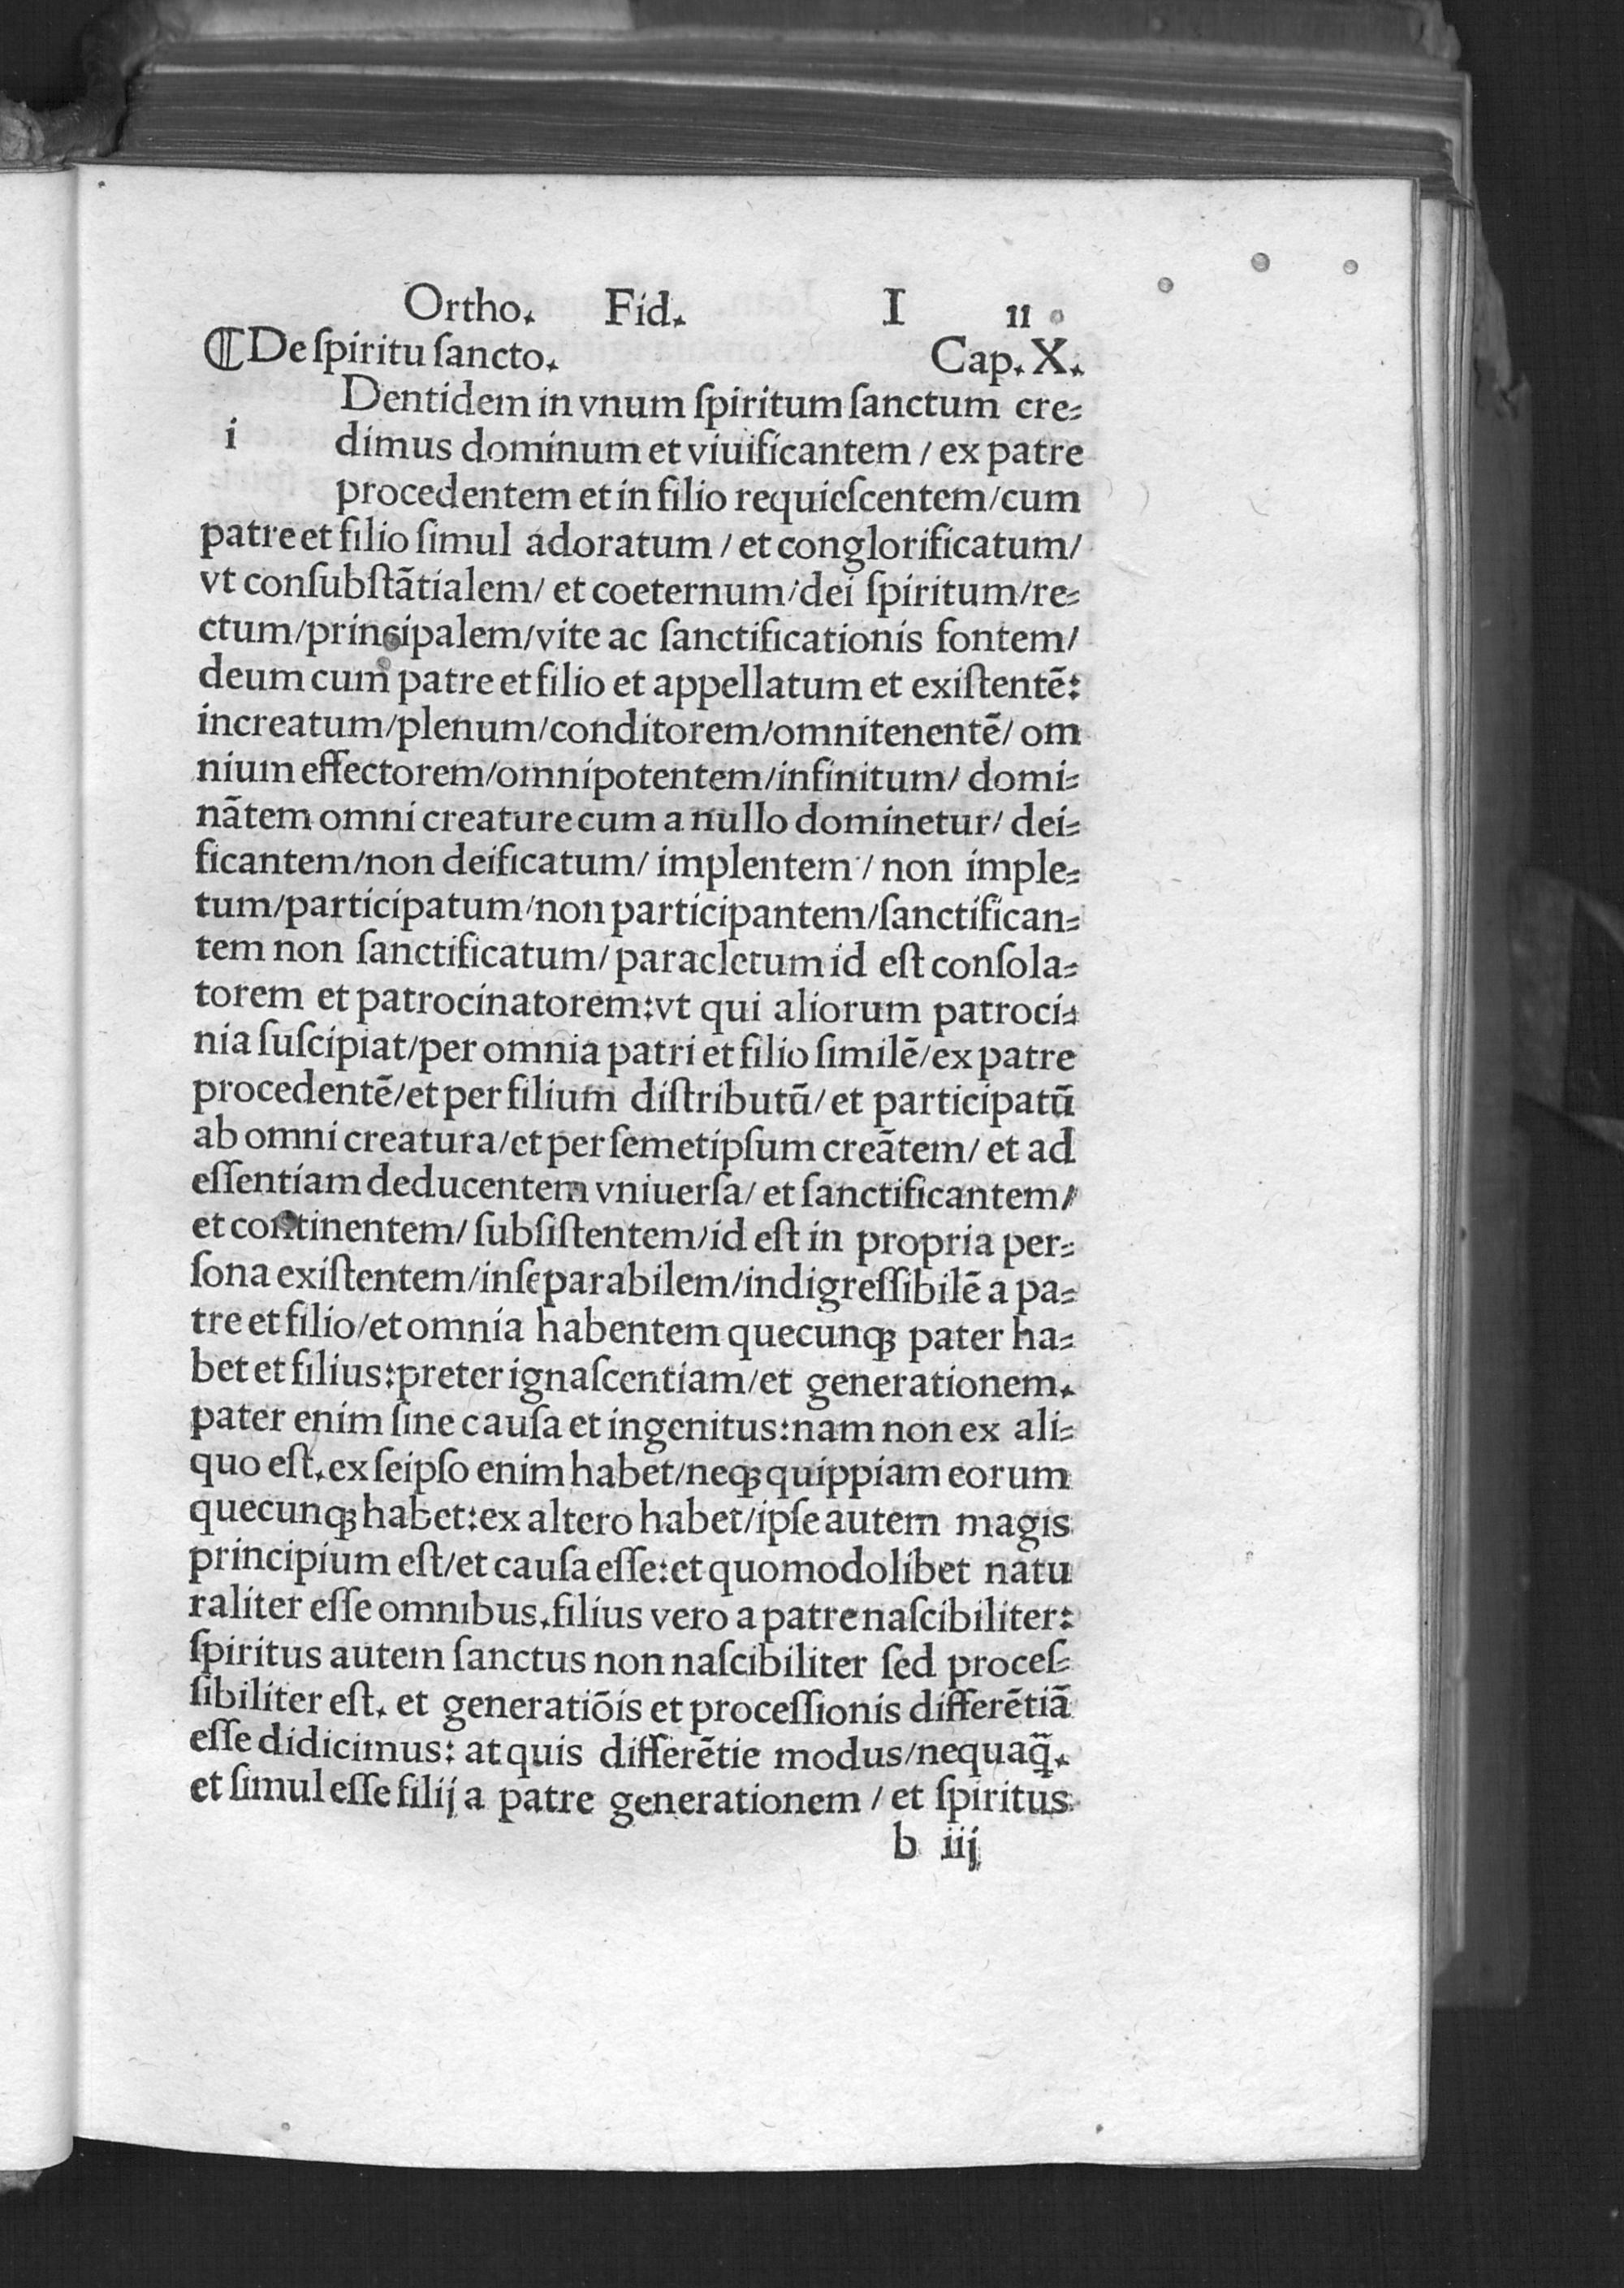 Ortho. Fid. I 11
⸿ De ſpiritu ſancto. Cap. X.
i Dentidem in vnum ſpiritum ſanctum cre⸗
dimus dominum et viuificantem / ex patre
procedentem et in filio requieſcentem/cum
patre et filio ſimul adoratum / et conglorificatum/
vt conſubſtãtialem/ et coeternum/dei ſpiritum/re⸗
ctum/principalem/vite ac ſanctificationis fontem/
deum cum patre et filio et appellatum et exiſtentẽ:
increatum/plenum/conditorem/omnitenentẽ/ om
nium effectorem/omnipotentem/infinitum/ domi⸗
nãtem omni creature cum a nullo dominetur/ dei⸗
ficantem/non deificatum/ implentem / non imple⸗
tum/participatum/non participantem/ſanctifican⸗
tem non ſanctificatum/ paracletum id eſt conſola⸗
torem et patrocinatorem:vt qui aliorum patroci⸗
nia ſuſcipiat/per omnia patri et filio ſimilẽ/ex patre
procedentẽ/et per filium diſtributũ/ et participatũ
ab omni creatura/et per ſemetipſum creãtem/ et ad
eſſentiam deducentem vniuerſa/ et ſanctificantem/
et continentem/ ſubſiſtentem/id eſt in propria per⸗
ſona exiſtentem/inſeparabilem/indigreſſibilẽ a pa⸗
tre et filio/et omnia habentem quecunqꝫ pater ha⸗
bet et filius:preter ignaſcentiam/et generationem.
pater enim ſine cauſa et ingenitus:nam non ex ali⸗
quo eſt.ex ſeipſo enim habet/neqꝫ quippiam eorum
quecunqꝫ habet:ex altero habet/ipſe autem magis
principium eſt/et cauſa eſſe:et quomodolibet natu
raliter eſſe omnibus.filius vero a patre naſcibiliter:
ſpiritus autem ſanctus non naſcibiliter ſed proceſ⸗
ſibiliter eſt. et generatiõis et proceſſionis differẽtiã
eſſe didicimus: at quis differẽtie modus/nequaq̃.
et ſimul eſſe filij a patre generationem / et ſpiritus
b iij